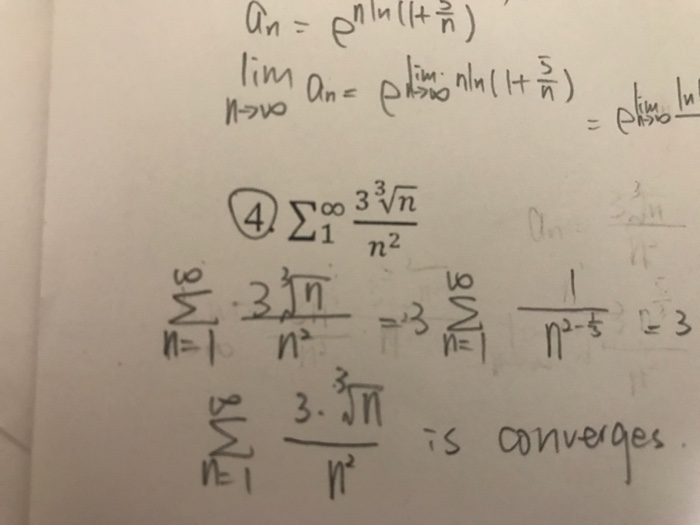 aₙ = e^{n ln(1+5/n)}
lim_{n→∞} aₙ = e^{lim_{n→∞} n ln(1+5/n)} = e^{lim_{n→∞} ln
4. ∑₁^∞ 3∛n / n²
∑_{n=1}^∞ 3∛n / n² = 3 ∑_{n=1}^∞ 1 / n^{2-1/3} = 3
∑_{n=1}^∞ 3·∛n / n² is converges.